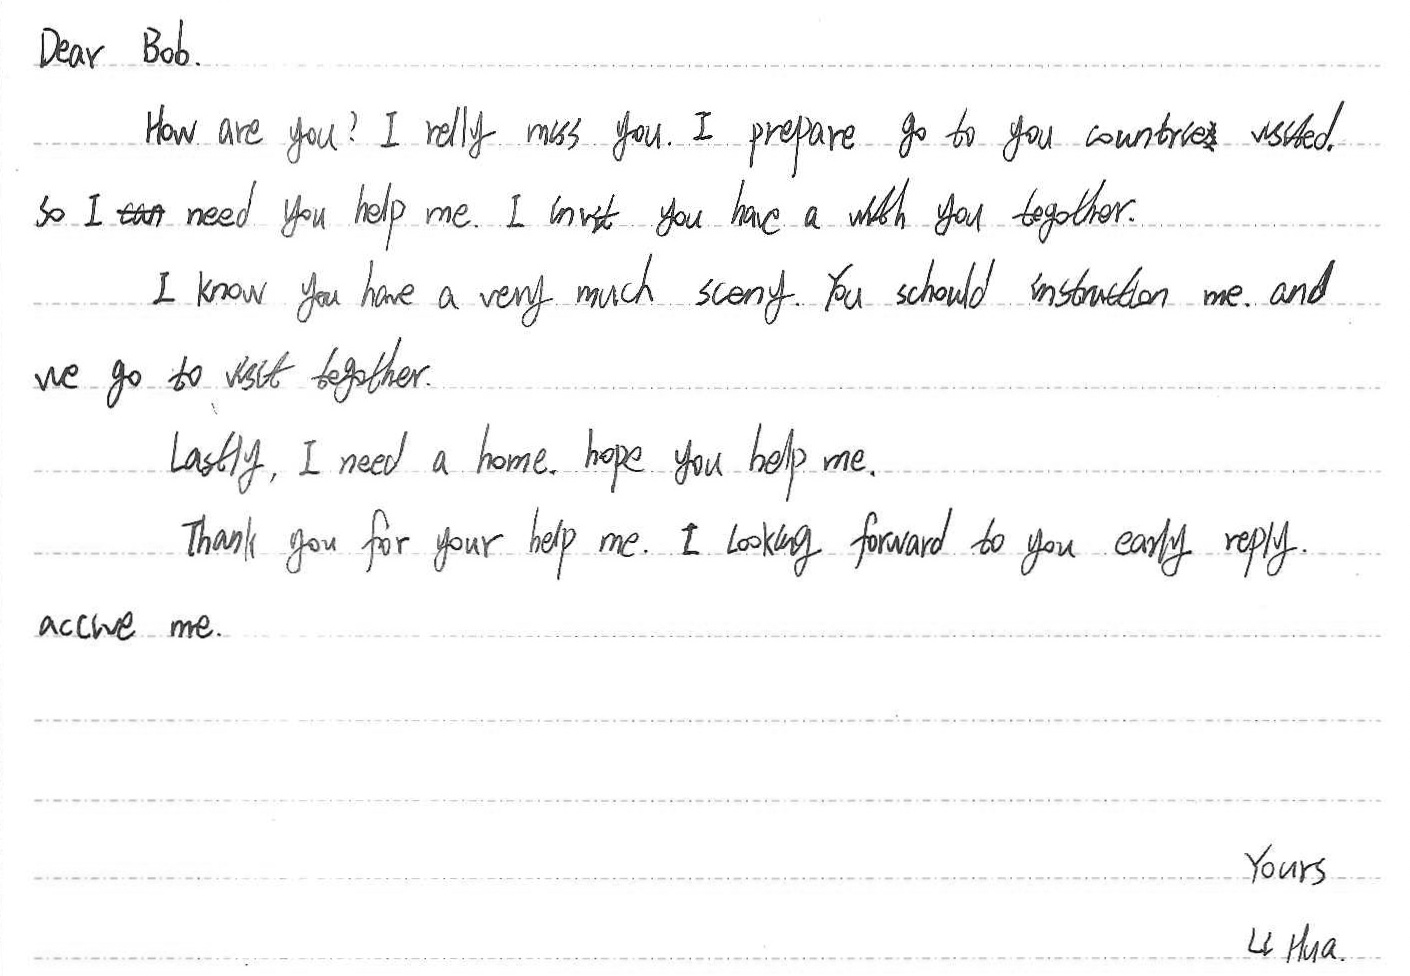 Dear Bob.
How are you? I relly miss you. I prepare go to you countries visited.
so I can need you help me. I invit you have a with you tegother.
I know you have a very much sceny. You schould instruction me. and
we go to visit tegother.
Lastly, I need a home. hope you help me.
Thank you for your help me. I Looking forward to you early reply.
me.
Yours
Li Hua.